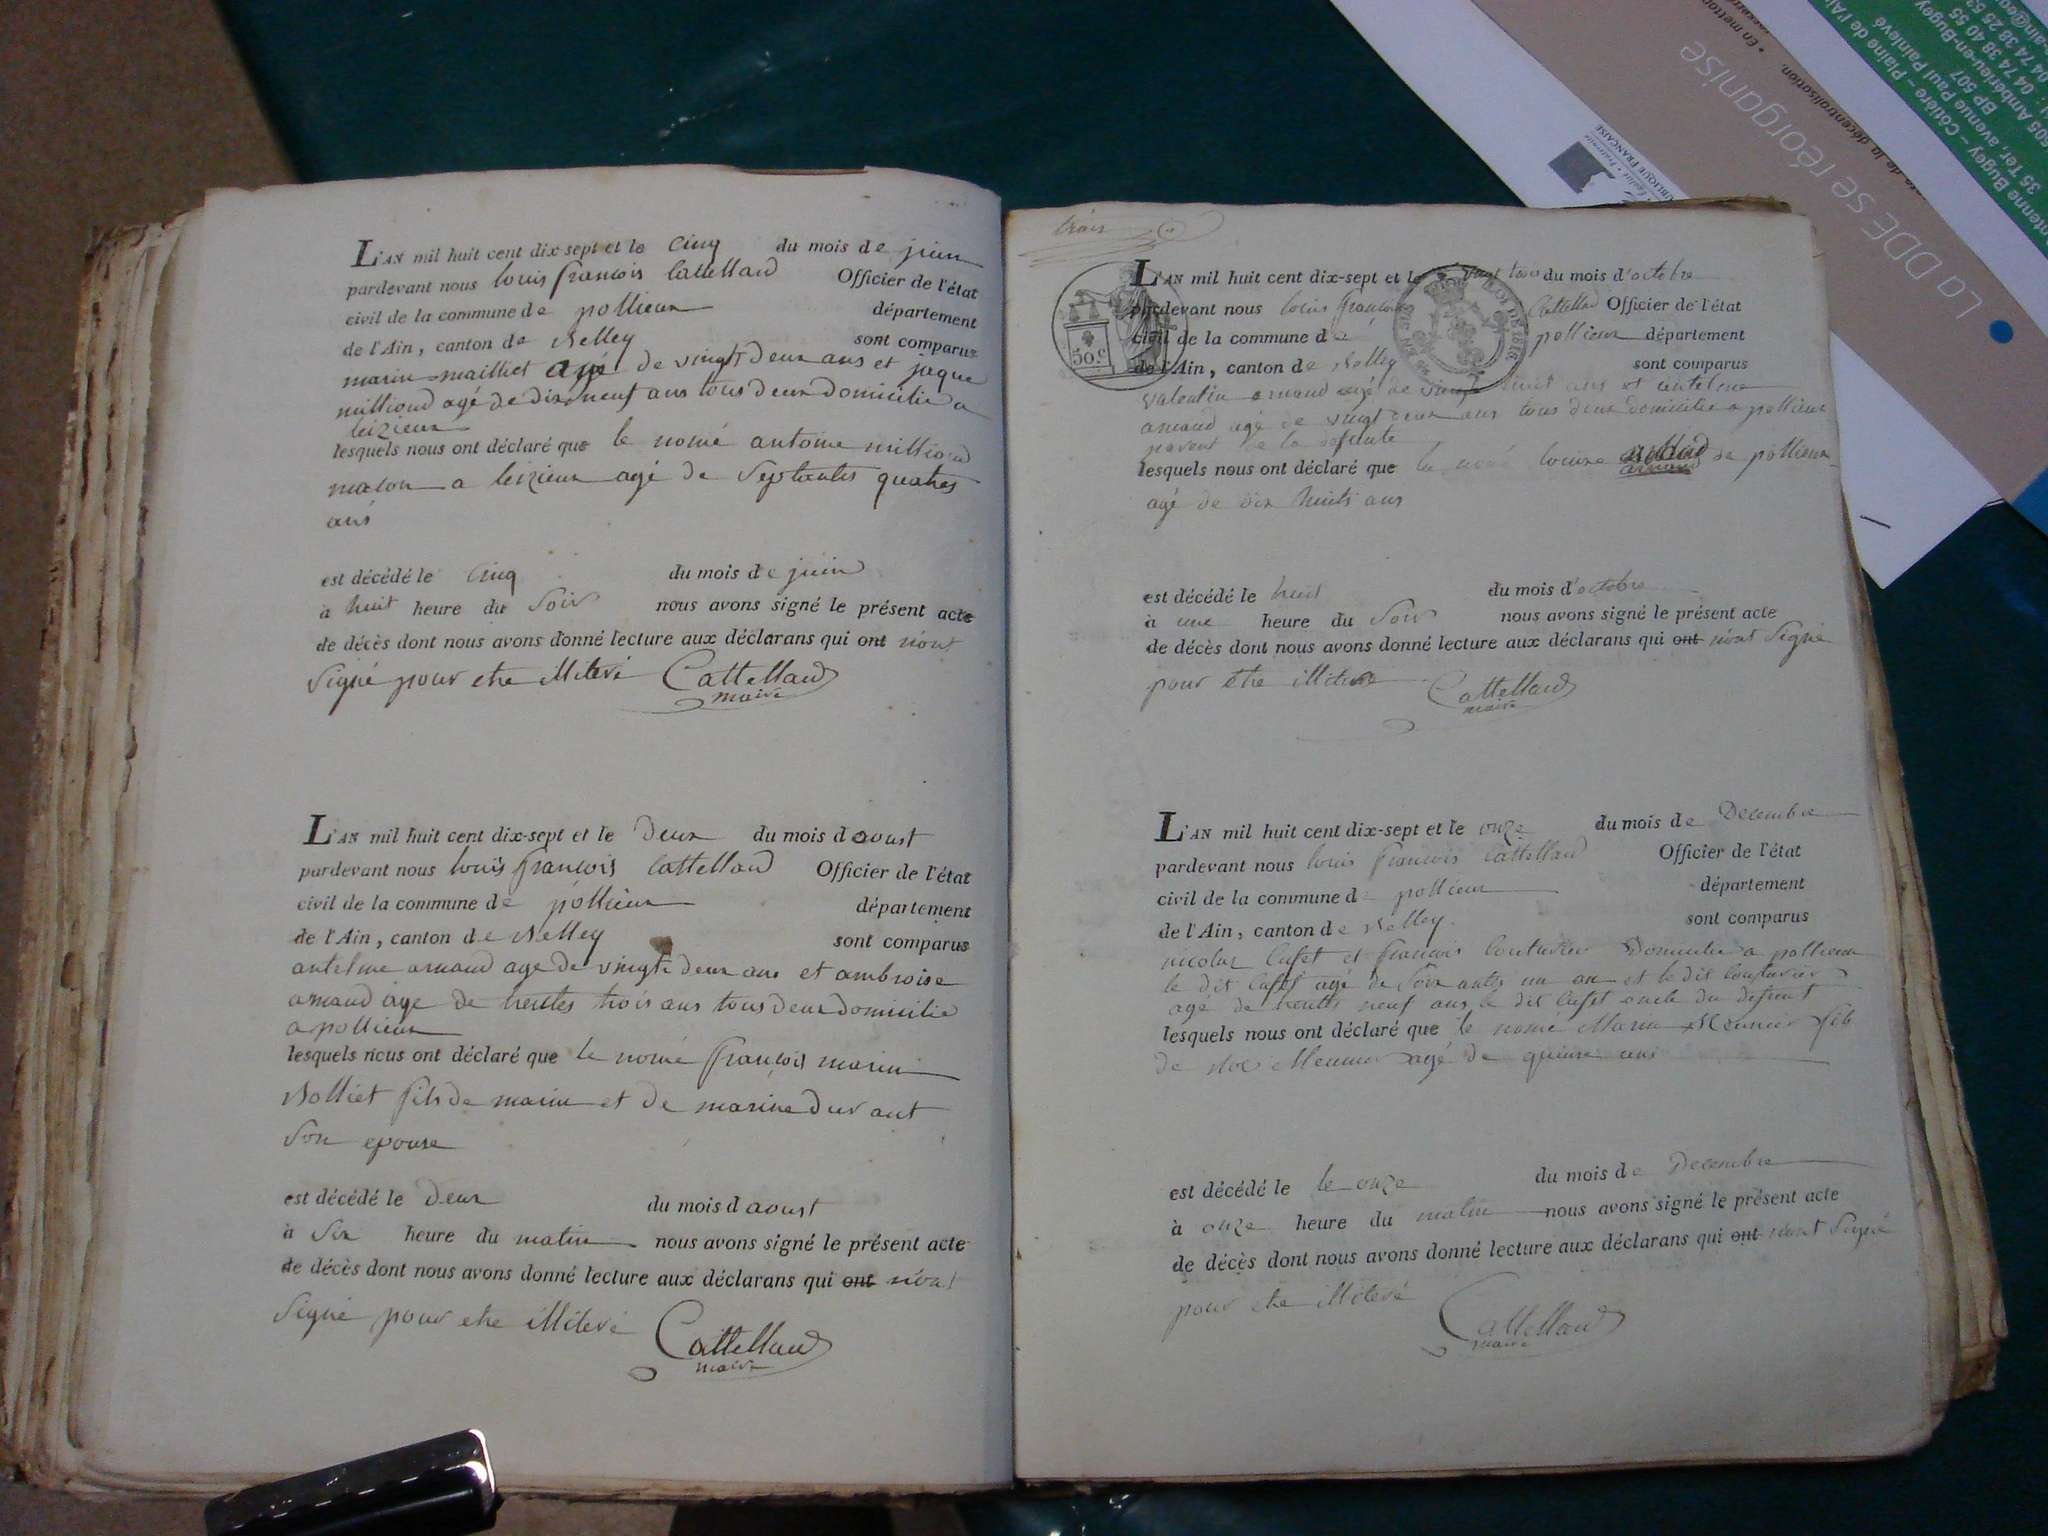 L'AN mil huit cent dix-sept et le cinq du mois de juin
pardevant nous louis françois Cattelland Officier de l'état
civil de la commune de pollieux département
de l'Ain, canton de Belley sont comparus
marin mailliet agé de vingt deux ans et jaque
milliond agé de dix neuf ans tous deux domicilié a
leizieux
lesquels nous ont déclaré que le nomé antoine milliond
maçon a leizieux agé de septantes quatres
ans
est décédé le cinq du mois de juin
à huit heure du soir nous avons signé le présent acte
de décès dont nous avons donné lecture aux déclarans qui ont n'ont
signé pour etre illiteré Cattelland
maire
L'AN mil huit cent dix-sept et le deux du mois d aoust
pardevant nous louis françois Cattelland Officier de l'état
civil de la commune de pollieux département
de l'Ain, canton de Belley sont comparus
antelme arnaud age de vingt deux ans et ambroise
arnaud age de trentes trois ans tous deux domicilié
a pollieux
lesquels nous ont déclaré que le nomé françois marin
Bolliet fils de marin et de marine
son epouse
est décédé le deux du mois d aoust
à six heure du matin nous avons signé le présent acte
de décès dont nous avons donné lecture aux déclarans qui ont n'ont
signé pour etre illiteré Cattelland
maire
trois
L'AN mil huit cent dix-sept et le vingt trois du mois d'octobre
pardevant nous louis françois Cattelland Officier de l'état
civil de la commune de pollieux département
50.c
de l'Ain, canton de Belley sont comparus
valentin arnaud agé de vingt huit ans et antelme
arnaud agé de vingt deux ans tous deux domicilié a pollieux
parent de la defunte
lesquels nous ont déclaré que la nomé louise arnaud de pollieux
agé de dix huits ans
est décédé le huit du mois d'octobre
à une heure du soir nous avons signé le présent acte
de décès dont nous avons donné lecture aux déclarans qui ont n'ont signé
pour etre illiteré Cattelland
maire
L'AN mil huit cent dix-sept et le onze du mois de Decembre
pardevant nous louis françois Cattelland Officier de l'état
civil de la commune de pollieux département
de l'Ain, canton de Belley sont comparus
nicolas et françois couturier Domicilié a pollieux
le dit agé de soixantes un an et le dit couturier
agé de trentes neuf ans le dit oncle du defunt
lesquels nous ont déclaré que le nomé Marin Meunier fils
de Meunier agé de quinze ans
est décédé le le onze du mois de Decembre
à onze heure du matin nous avons signé le présent acte
de décès dont nous avons donné lecture aux déclarans qui ont n'ont signé
pour etre illiteré Cattelland
maire
La DDE se réorganise
de la décentralisation.
35 Ter, avenue Paul Painlevé
BP 507
Ambérieu-en-Bugey
04 74 38 40 55